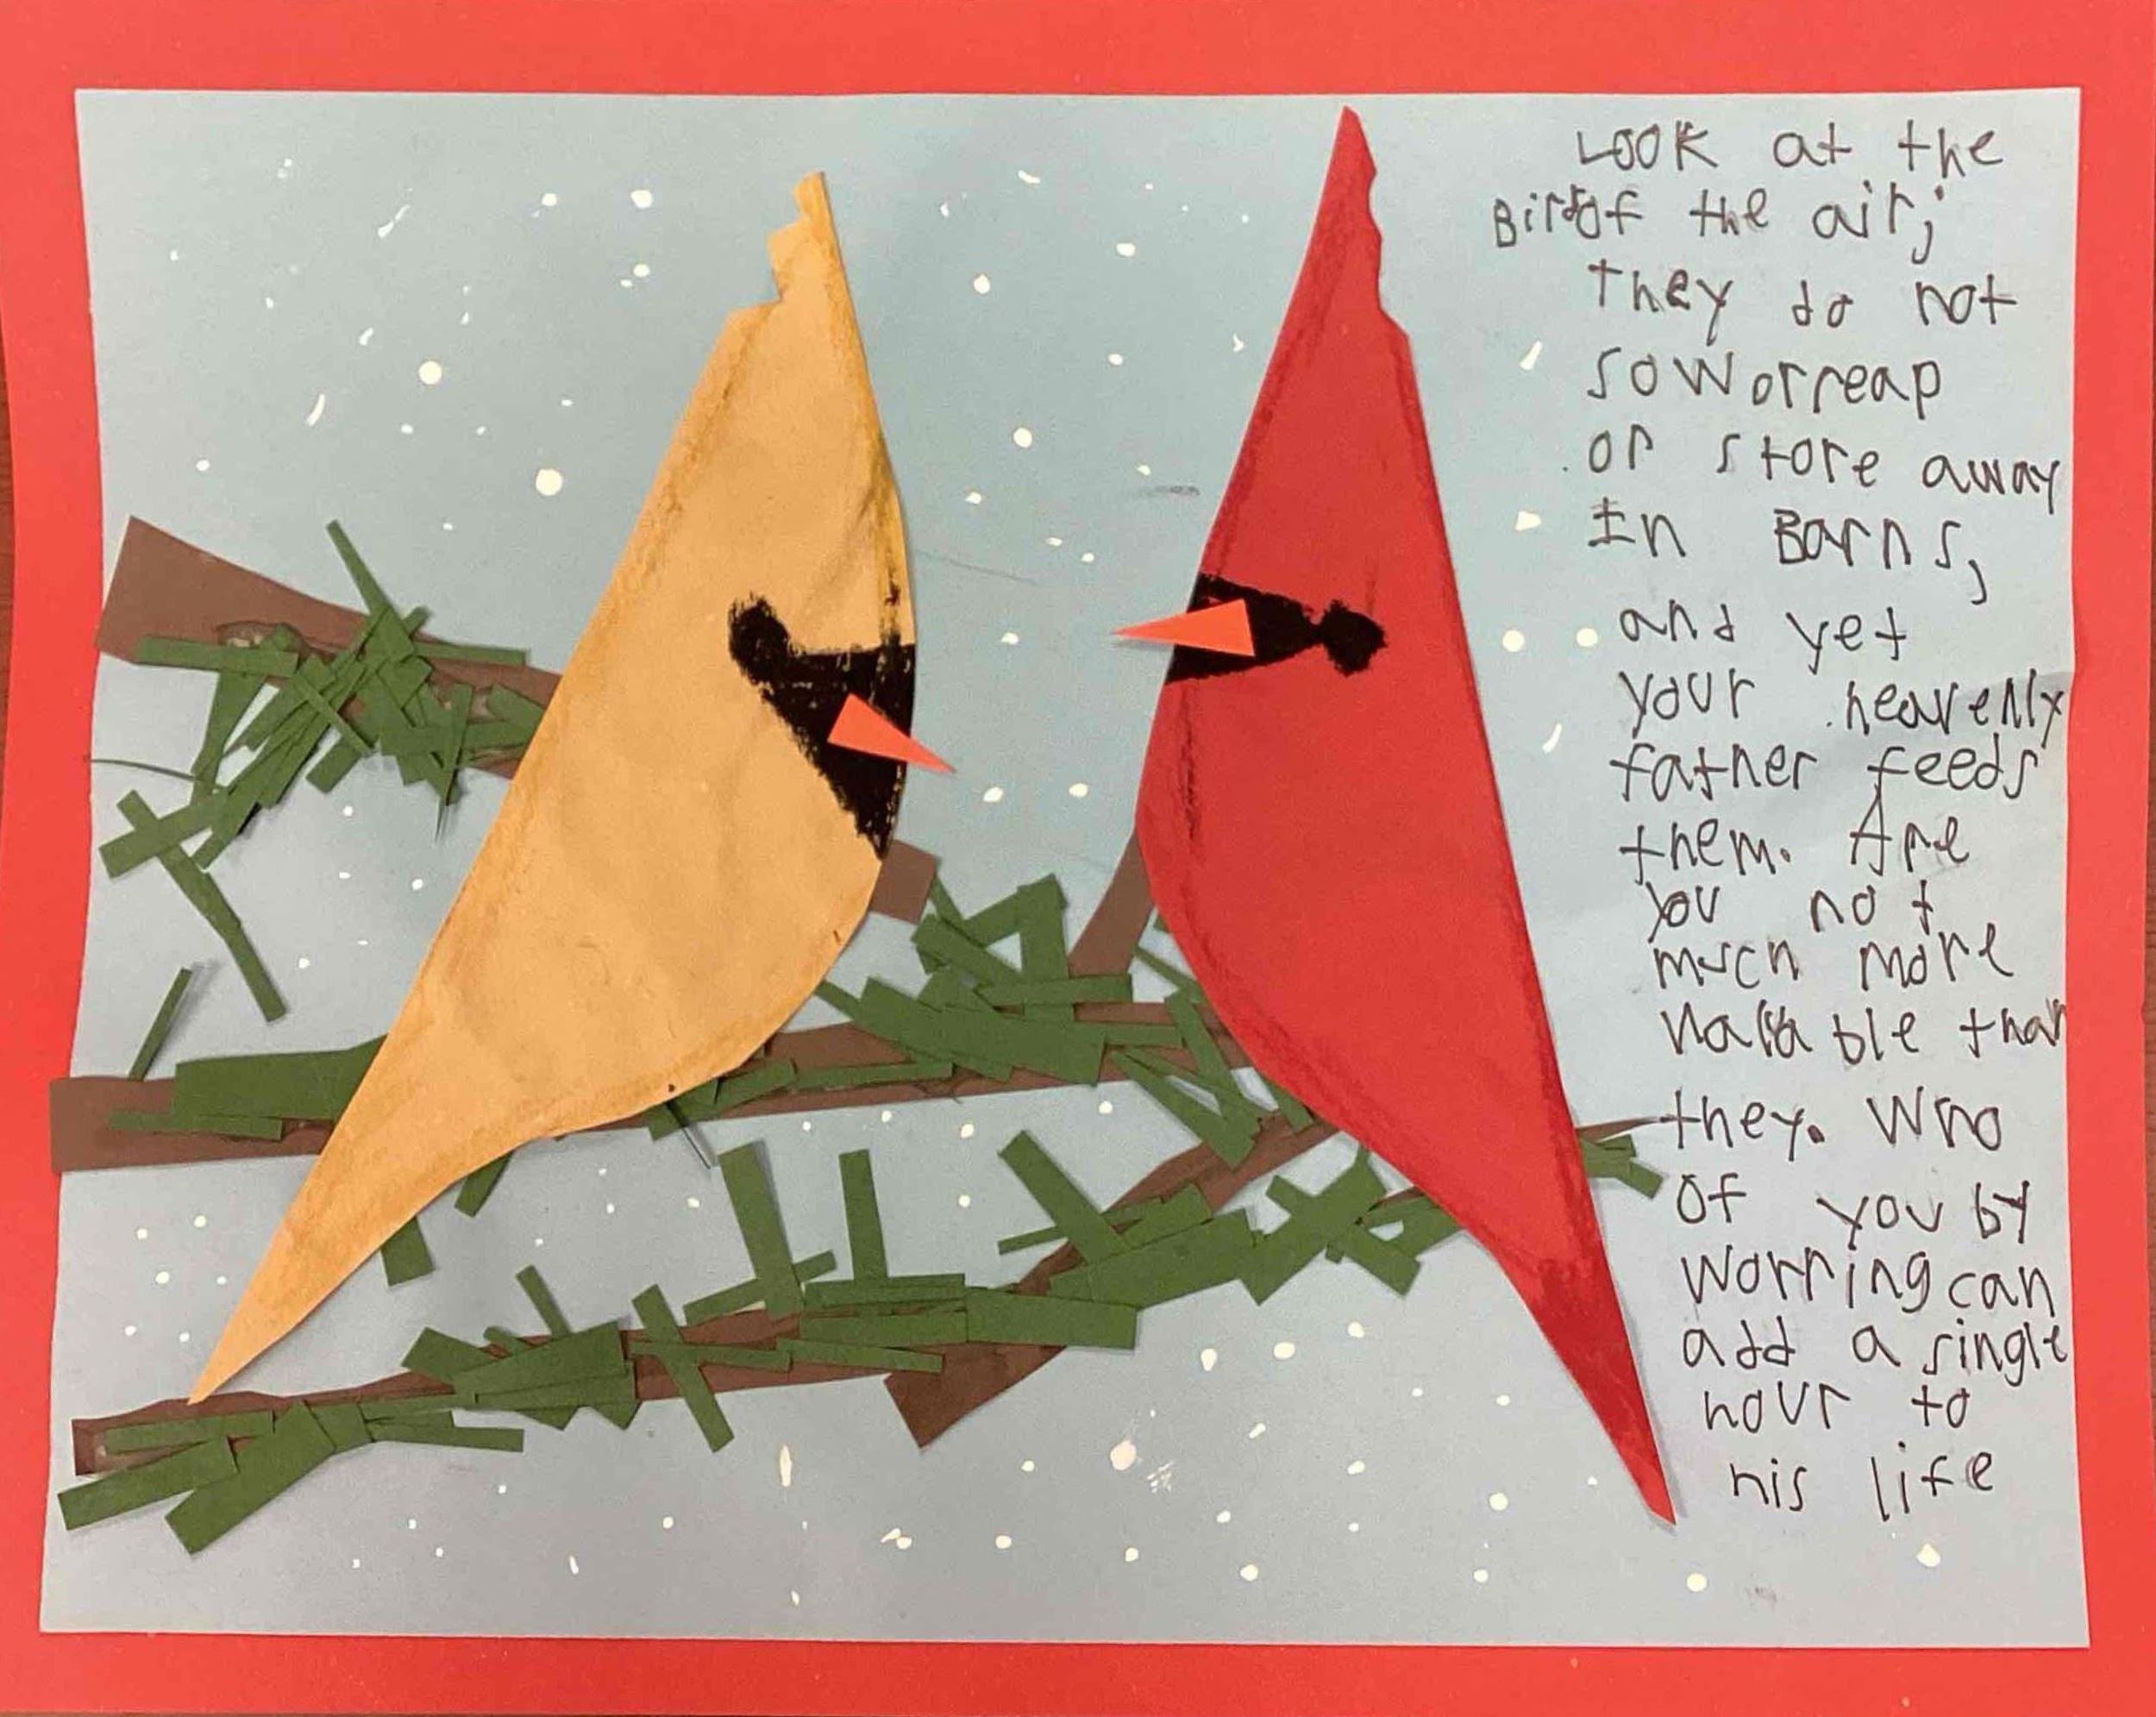 Look at the
Birdsof the air;
They do not
sow or reap
or store away
In Barns,
and yet
your heavenly
father feeds
them. Are
you not
much more
than
they. Who
Of you by
worrying can
add a single
hour to
his life